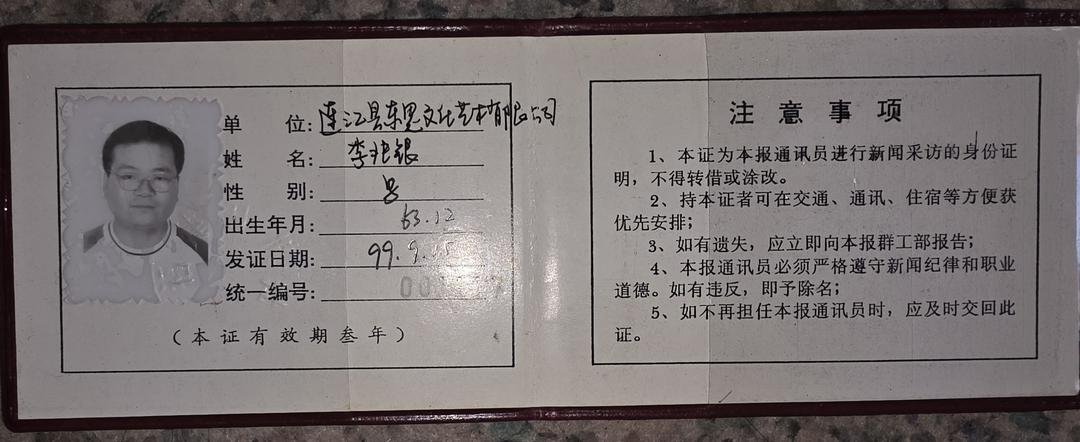 单 位:连江县东思文化艺术有限公司
姓 名:李兆银
性 别:男
出生年月:63.12
发证日期:99.9.
统一编号:00
(本证有效期叁年)
注意事项
1、本证为本报通讯员进行新闻采访的身份证
明,不得转借或涂改。
2、持本证者可在交通、通讯、住宿等方便获
优先安排;
3、如有遗失,应立即向本报群工部报告;
4、本报通讯员必须严格遵守新闻纪律和职业
道德。如有违反,即予除名;
5、如不再担任本报通讯员时,应及时交回此
证。